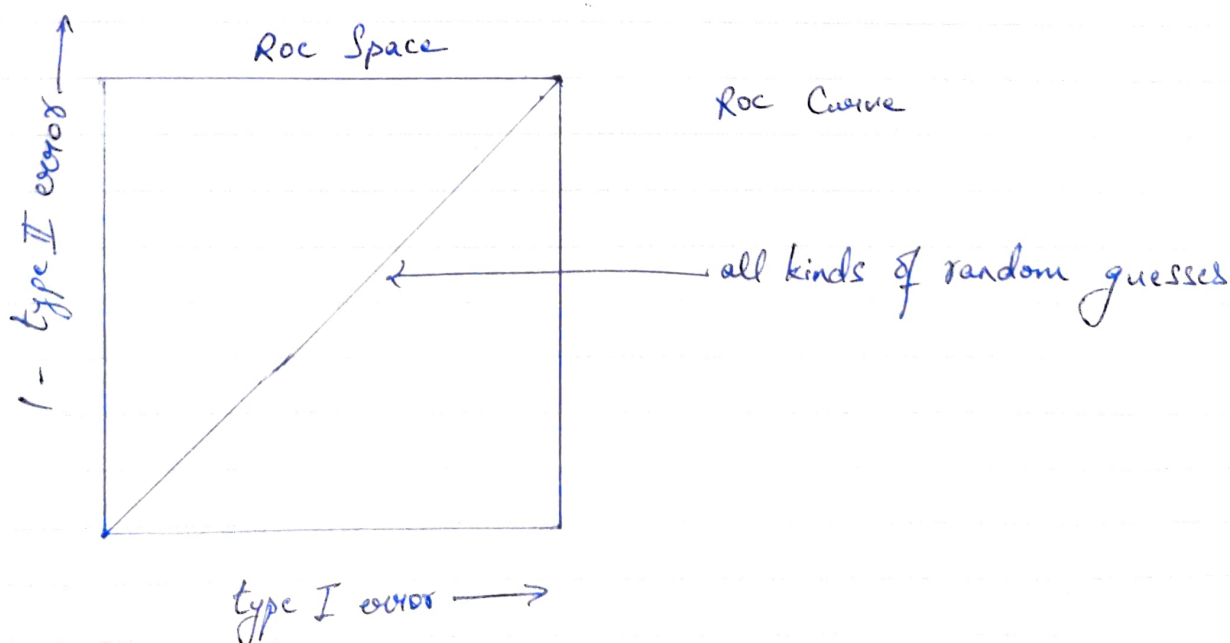 Roc Space
Roc Curve
1 - type II error
all kinds of random guesses
type I error